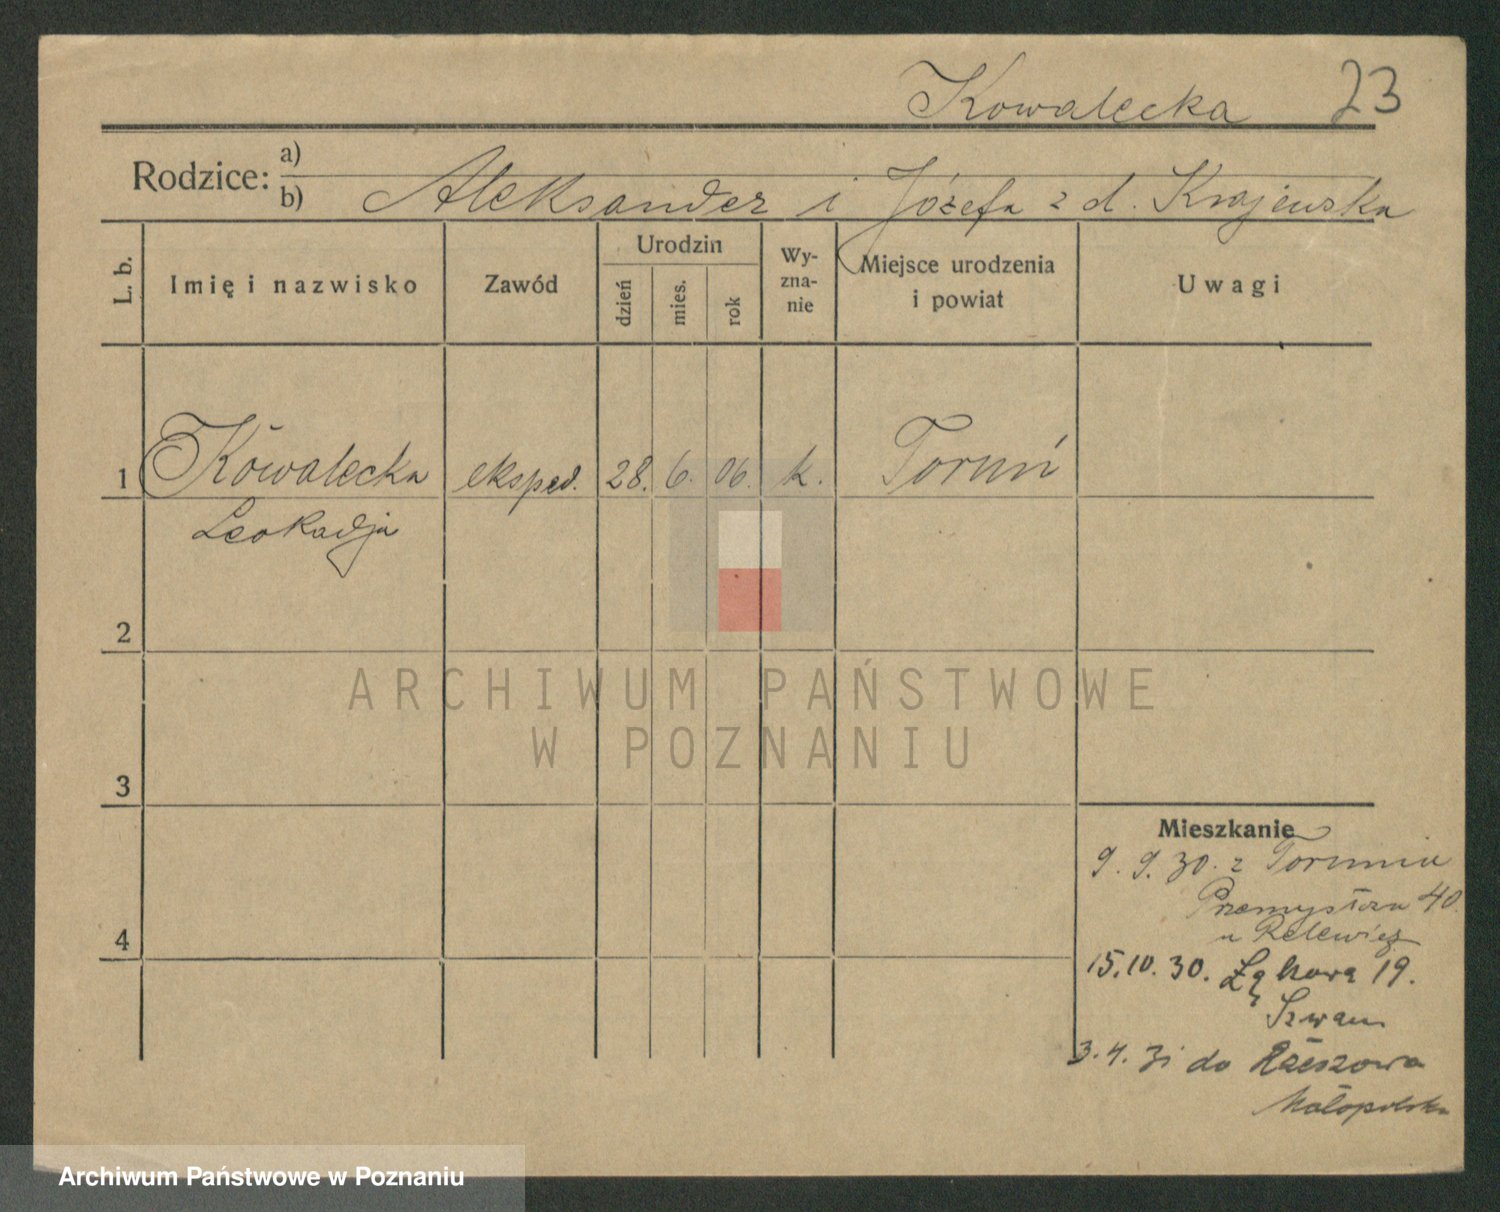 Kowalecka 23
Rodzice: a)
b) Aleksander i Józefa z d. Krajewska
L. b. Imię i nazwisko Zawód Urodzin dzień mies. rok Wy-zna-nie Miejsce urodzenia i powiat Uwagi
1 Kowalecka eksped. 28. 6. 06. k. Toruń
Leokadja
2
3
4
Mieszkanie
9. 9. 30. z Torunia
Przemysłowa 40.
u
15.10.30. Łąkowa 19.
3.4.31 do Rzeszowa
Małopolska
ARCHIWUM PAŃSTWOWE
W POZNANIU
Archiwum Państwowe w Poznaniu